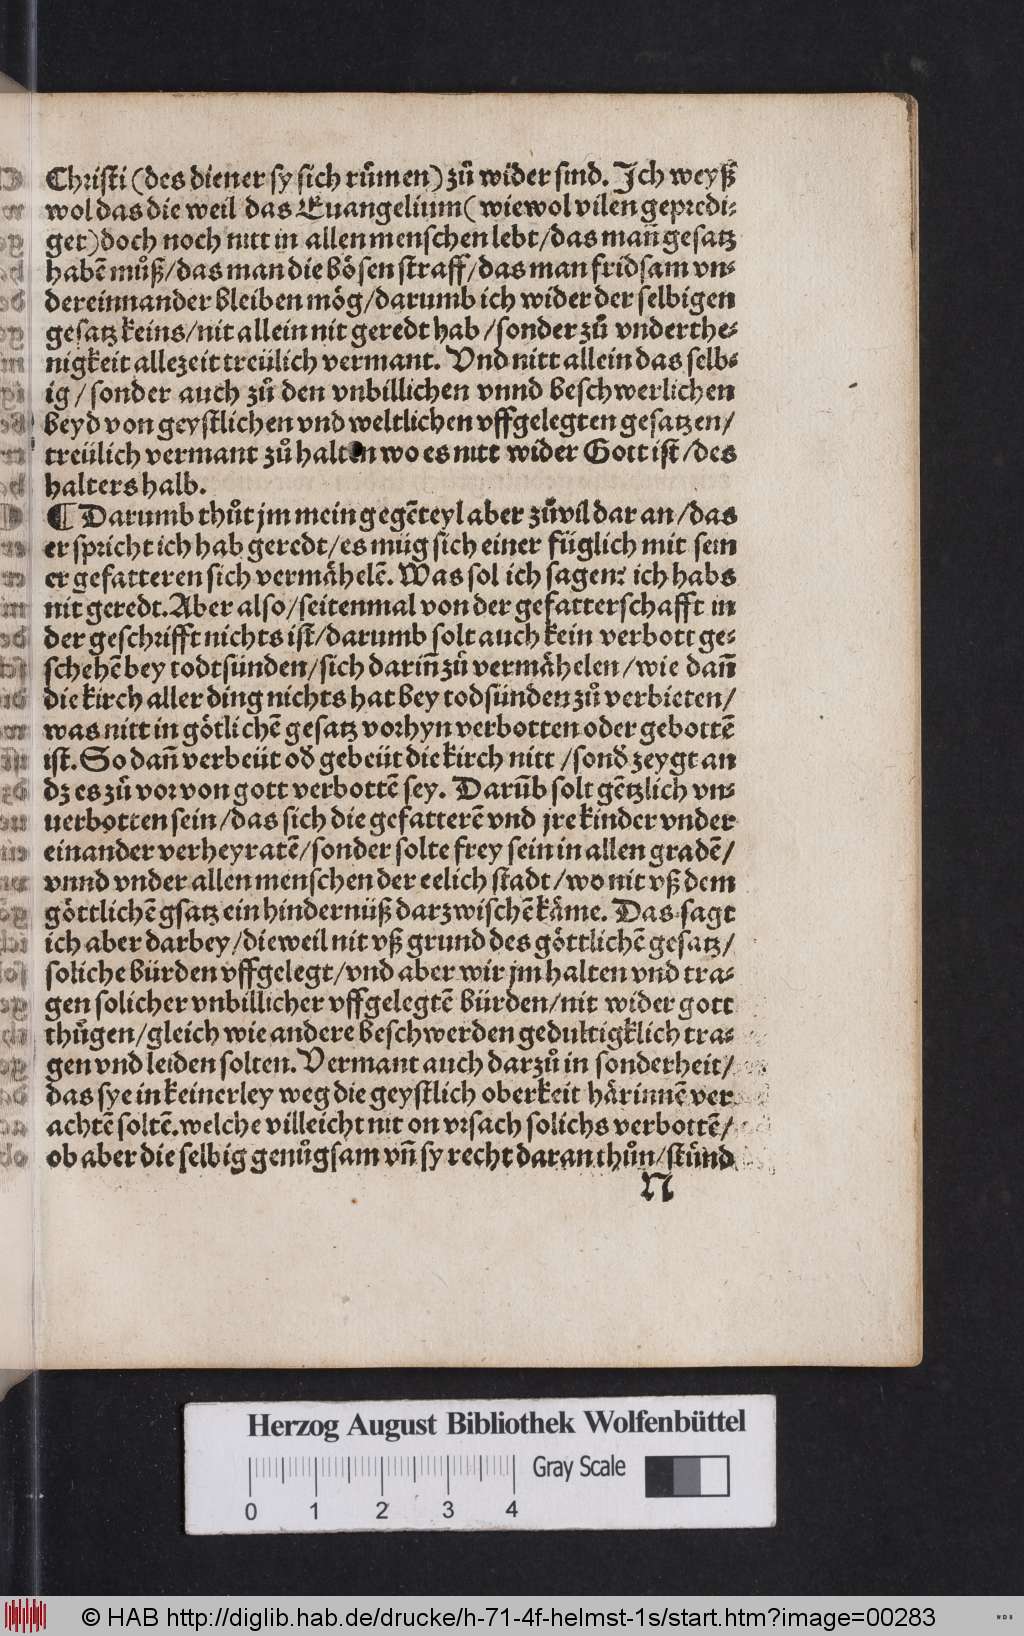 Christi (des diener sy sich rũmen) zů wider sind. Ich weyß
wol das die weil das Euangelium ( wiewol vilen gepredi⸗
get) doch noch nitt in allen menschen lebt/ das mañ gesatz
habē můß/ das man die bösen straff/ das man fridsam vn⸗
dereinnander bleiben mög/ darumb ich wider der selbigen
gesatz keins/ nit allein nit geredt hab/ sonder zů vnderthe⸗
nigkeit allezeit treülich vermant. Vnd nitt allein das selb⸗
ig/ sonder auch zů den vnbillichen vnnd beschwerlichen
beyd von geystlichen vnd weltlichen vffgelegten gesatzen/
treülich vermant zů halten wo es nitt wider Gott ist/ des
halters halb.
¶ Darumb thůt jm mein gegēteyl aber zůvil dar an/ das
er spricht ich hab geredt/ es müg sich einer füglich mit sein
er gefatteren sich vermähelē. Was sol ich sagen? ich habs
nit geredt. Aber also/ seitenmal von der gefatterschafft in
der geschrifft nichts ist/ darumb solt auch kein verbott ge⸗
schehē bey todtsünden/ sich dariñ zů vermähelen/ wie dañ
die kirch aller ding nichts hat bey todsünden zů verbieten/
was nitt in götlichē gesatz vorhyn verbotten oder gebottē
ist. So dañ verbeüt oď gebeüt die kirch nitt/ sonď zeygt an
dz es zů vor von gott verbottē sey. Darũb solt gētzlich vn⸗
uerbotten sein/ das sich die gefatterē vnd jre kinder vnder
einander verheyratē/ sonder solte frey sein in allen gradē/
vnnd vnder allen menschen der eelich stadt/ wo nit vß dem
göttlichē gsatz ein hindernüß darzwischē käme. Das sagt
ich aber darbey/ dieweil nit vß grund des göttlichē gesatz/
soliche bürden vffgelegt/ vnd aber wir jm halten vnd tra⸗
gen solicher vnbillicher vffgelegtē bürden/ nit wider gott
thügen/ gleich wie andere beschwerden gedultigklich tra⸗
gen vnd leiden solten. Vermant auch darzů in sonderheit/
das sye in keinerley weg die geystlich oberkeit härinnē ver
achtē soltē. welche villeicht nit on vrsach solichs verbottē/
ob aber die selbig genůgsam vñ sy recht daran thůn/ stünd
N
Herzog August Bibliothek Wolfenbüttel
Gray Scale
0 1 2 3 4
© HAB http://diglib.hab.de/drucke/h-71-4f-helmst-1s/start.htm?image=00283